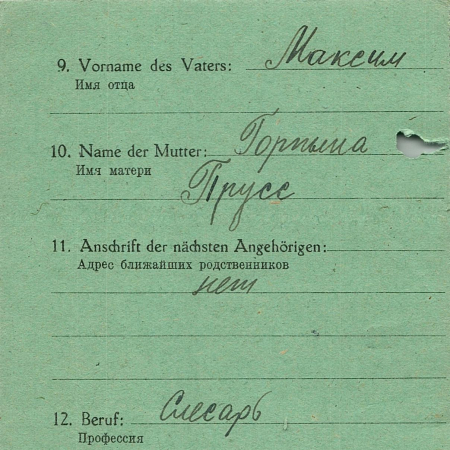 9. Vorname des Vaters: Максим
Имя отца
10. Name der Mutter: Горпына
Имя матери Прусс
11. Anschrift der nächsten Angehörigen:
Адрес ближайших родственников
нет
12. Beruf: Слесарь
Профессия